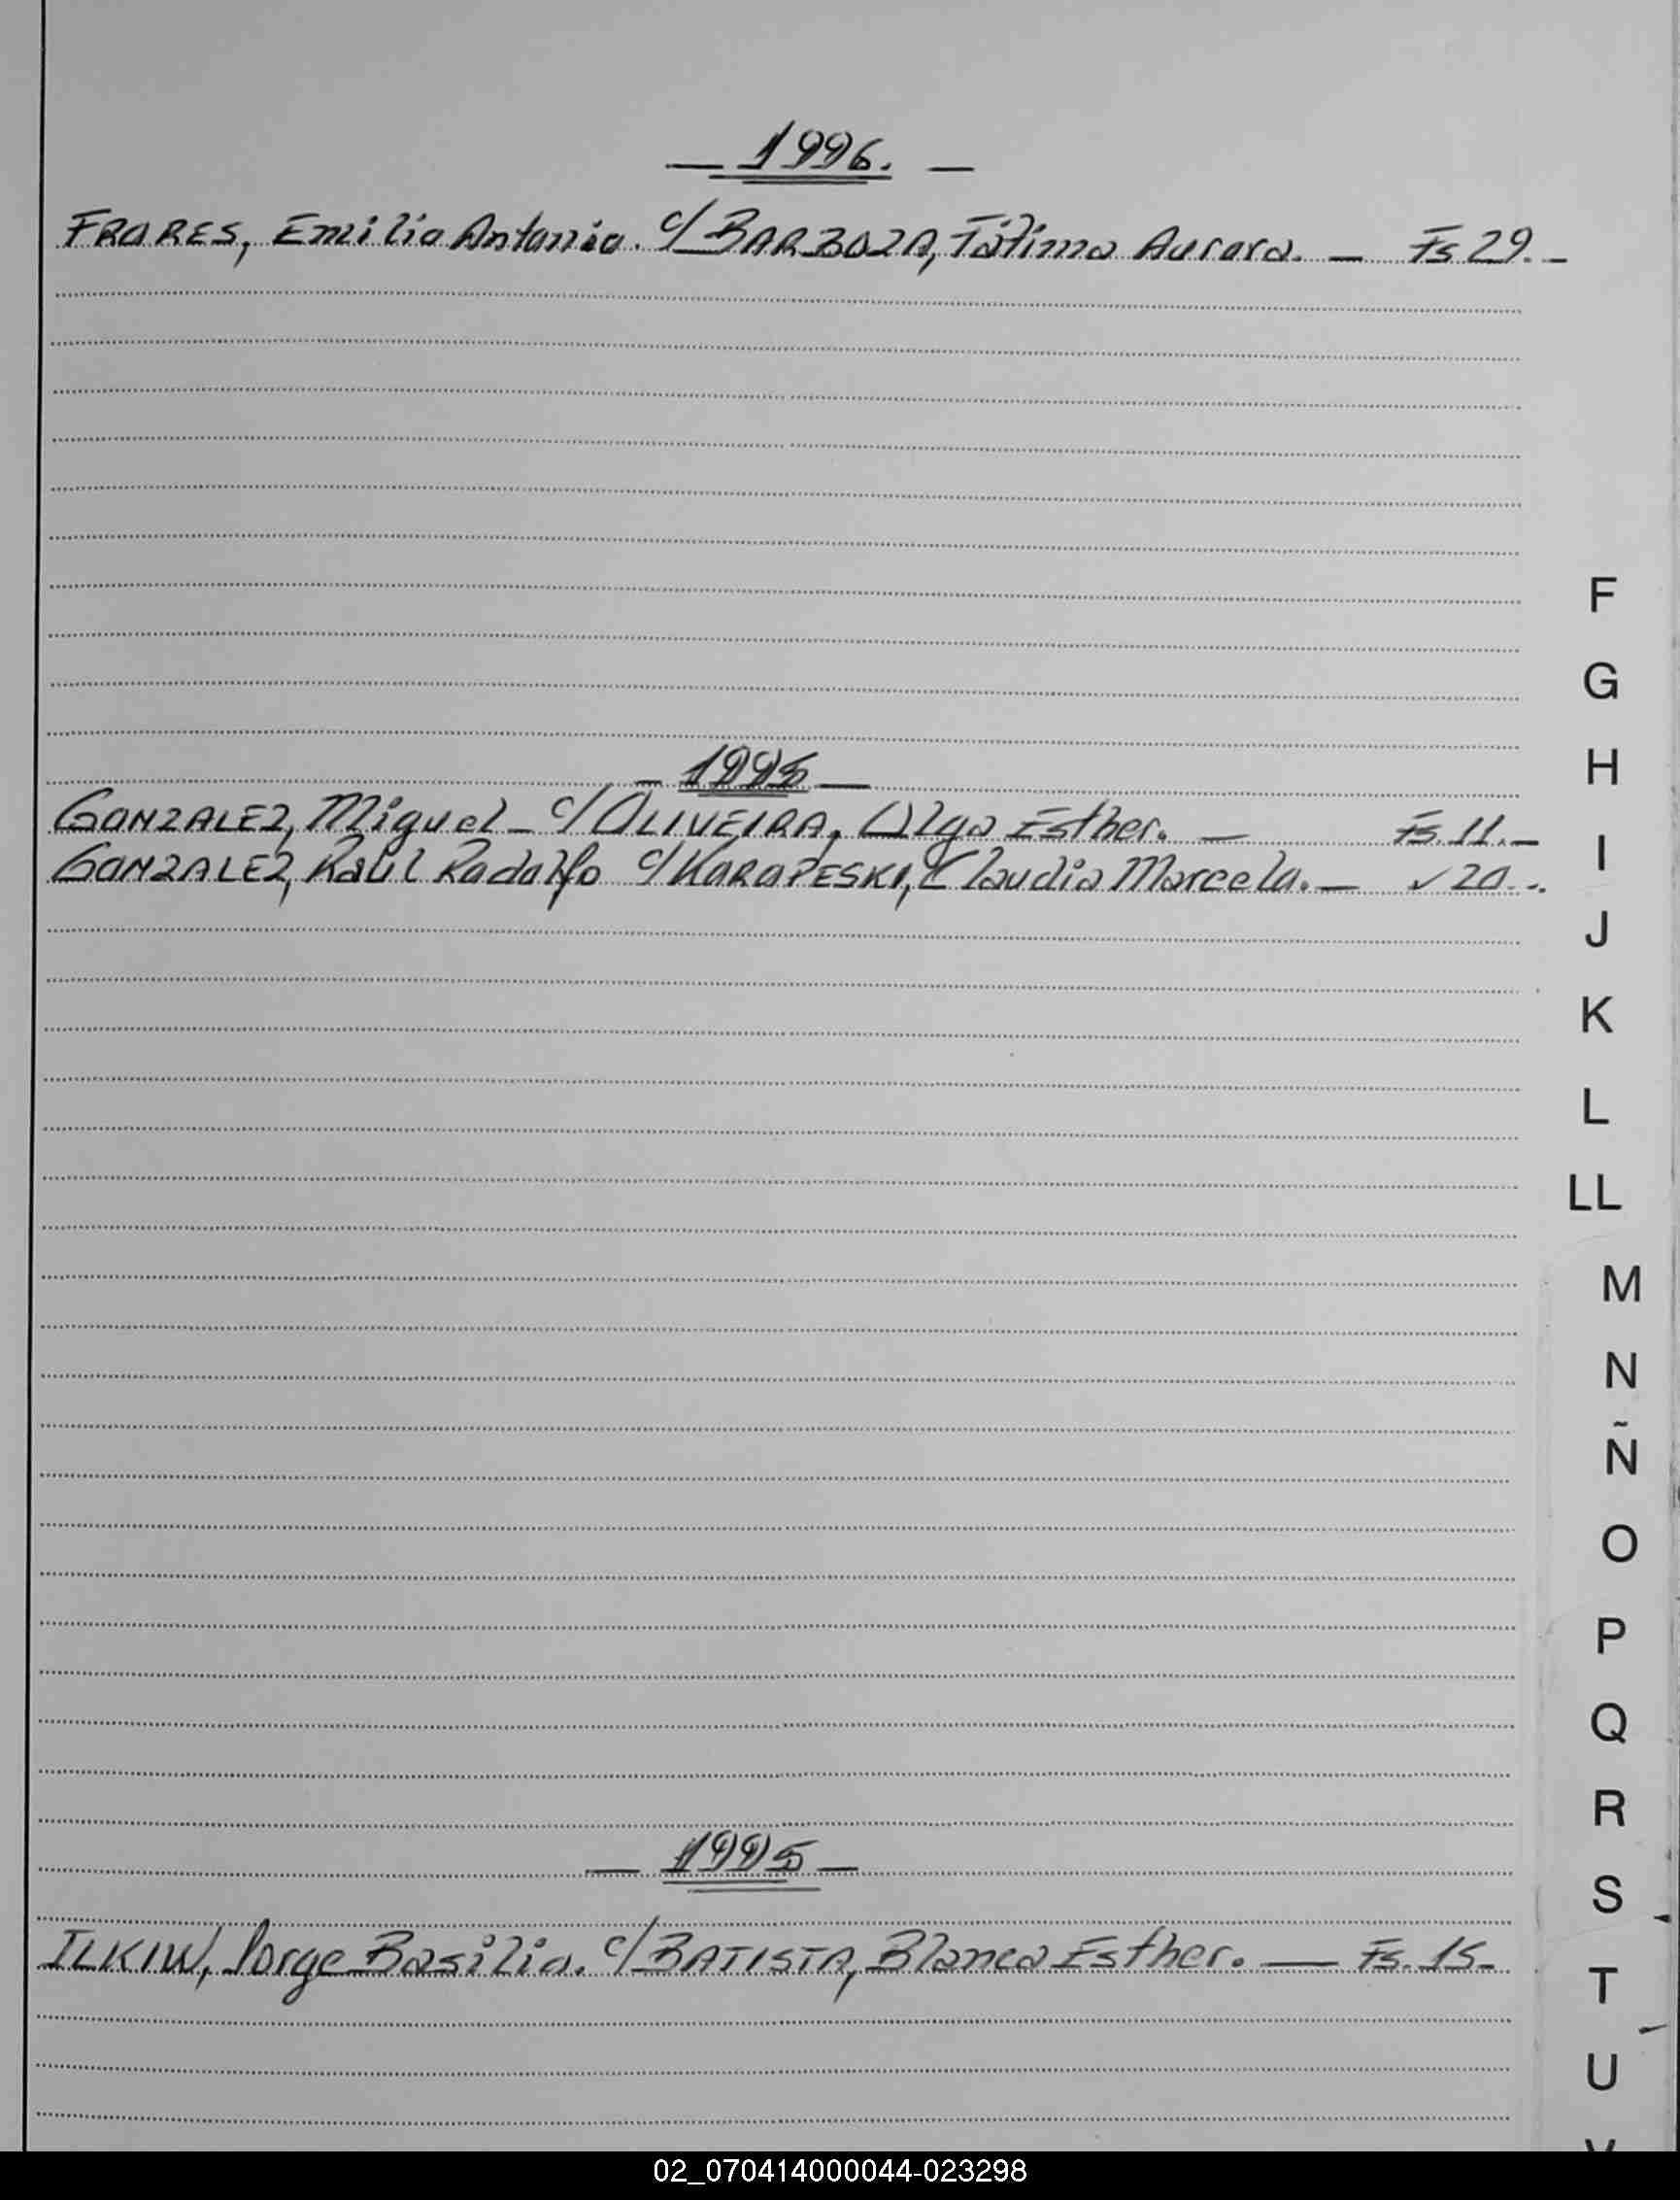 — 1996. —
FRARES, Emilio Antonio. c/ BARBOZA, Fátima Aurora. — Fs 29. –
— 1995 —
GONZALEZ, Miguel – c/ OLIVEIRA, Olga Esther. — Fs. 11. –
GONZALEZ, Raúl Rodolfo c/ KARAPESKI, Claudia Marcela. — ✓ 20. –.
— 1995 —
ILKIW, Jorge Basilio. c/ BATISTA, Blanca Esther. — Fs. 15 –
F
G
H
I
J
K
L
LL
M
N
Ñ
O
P
Q
R
S
T
U
V
02_070414000044-023298